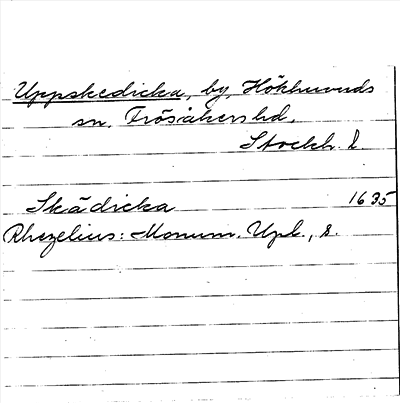 Uppskedicka, by, Hökhuvuds
sn, Frösåkers hd,
Stockh. l.
Skädicka 1635
Rhezelius: Monum. Upl., s.